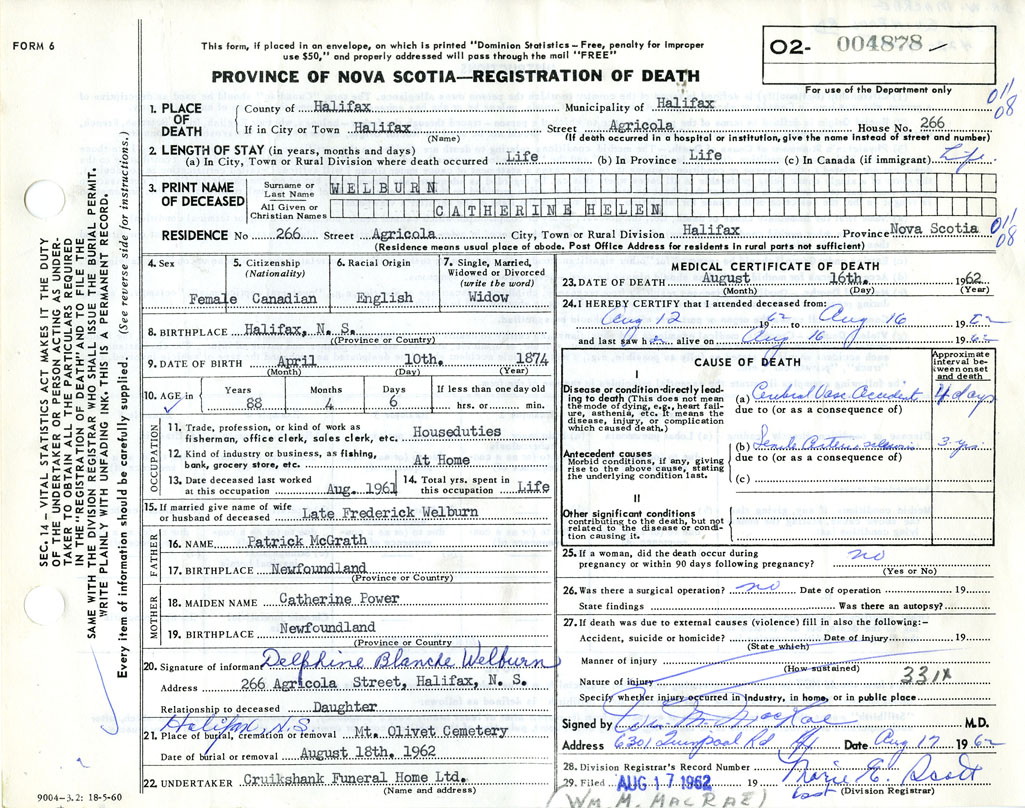 FORM 6
This form, if placed in an envelope, on which is printed "Dominion Statistics – Free, penalty for Improper
use $50," and properly addressed will pass through the mail "FREE"
PROVINCE OF NOVA SCOTIA—REGISTRATION OF DEATH
O2- 004878
For use of the Department only
011/08
1. PLACE OF DEATH
County of Halifax Municipality of Halifax
If in City or Town Halifax Street Agricola House No. 266
(Name) (If death occurred in a hospital or institution, give the name instead of street and number)
2. LENGTH OF STAY (in years, months and days)
(a) In City, Town or Rural Division where death occurred Life (b) In Province Life (c) In Canada (if immigrant) Life
3. PRINT NAME OF DECEASED
Surname or Last Name WELBURN
All Given or Christian Names CATHERINE HELEN
RESIDENCE No 266 Street Agricola City, Town or Rural Division Halifax Province Nova Scotia
011/08
(Residence means usual place of abode. Post Office Address for residents in rural parts not sufficient)
4. Sex
Female
5. Citizenship (Nationality)
Canadian
6. Racial Origin
English
7. Single, Married, Widowed or Divorced (write the word)
Widow
8. BIRTHPLACE Halifax, N. S.
((Province or Country)
9. DATE OF BIRTH April 10th. 1874
(Month) (Day) (Year)
10. AGE in Years Months Days If less than one day old
88 4 6 hrs. or min.
OCCUPATION
11. Trade, profession, or kind of work as fisherman, office clerk, sales clerk, etc. Houseduties
12. Kind of industry or business, as fishing, bank, grocery store, etc. At Home
13. Date deceased last worked at this occupation Aug. 1961
14. Total yrs. spent in this occupation Life
15. If married give name of wife or husband of deceased Late Frederick Welburn
FATHER
16. NAME Patrick McGrath
17. BIRTHPLACE Newfoundland
(Province or Country)
MOTHER
18. MAIDEN NAME Catherine Power
19. BIRTHPLACE Newfoundland
(Province or Country)
20. Signature of informant Delphine Blanche Welburn
Address 266 Agricola Street, Halifax, N. S.
Relationship to deceased Daughter
Halifax, N.S.
21. Place of burial, cremation or removal Mt. Olivet Cemetery
Date of burial or removal August 18th. 1962
22. UNDERTAKER Cruikshank Funeral Home Ltd.
(Name and address)
9004-3.2: 18-5-60
MEDICAL CERTIFICATE OF DEATH
23. DATE OF DEATH August 16th. 1962
(Month) (Day) (Year)
24. I HEREBY CERTIFY that I attended deceased from:
Aug 12 1962 to Aug 16 1962
and last saw her alive on Aug 16 1962
CAUSE OF DEATH
Approximate interval between onset and death
I
Disease or condition directly leading to death (This does not mean the mode of dying, e.g., heart failure, asthenia, etc. It means the disease, injury, or complication which caused death.)
(a) Cerebral Vasc. Accident 4 days
due to (or as a consequence of)
Antecedent causes
Morbid conditions, if any, giving rise to the above cause, stating the underlying condition last.
(b) Senile 3 yrs.
due to (or as a consequence of)
(c)
II
Other significant conditions
contributing to the death, but not related to the disease or condition causing it.
25. If a woman, did the death occur during
pregnancy or within 90 days following pregnancy? no
(Yes or No)
26. Was there a surgical operation? no Date of operation 19
State findings Was there an autopsy?
27. If death was due to external causes (violence) fill in also the following:–
Accident, suicide or homicide? Date of injury 19
(State which)
Manner of injury
(How sustained)
Nature of injury 331X
Specify whether injury occurred in industry, in home, or in public place
Signed by Wm M. MacRae M.D.
Address 6301 Quinpool Rd Hfx Date Aug 17 1962
28. Division Registrar's Record Number
29. Filed AUG 17 1962 19 Marie E. Scott
(Division Registrar)
(WM. M. MACRAE)
SEC. 14 – VITAL STATISTICS ACT MAKES IT THE DUTY
OF THE UNDERTAKER OR PERSON ACTING AS UNDER-
TAKER TO OBTAIN ALL THE PARTICULARS REQUIRED
IN THE "REGISTRATION OF DEATH" AND TO FILE THE
SAME WITH THE DIVISION REGISTRAR WHO SHALL ISSUE THE BURIAL PERMIT.
WRITE PLAINLY WITH UNFADING INK. THIS IS A PERMANENT RECORD.
Every item of information should be carefully supplied. (See reverse side for instructions.)